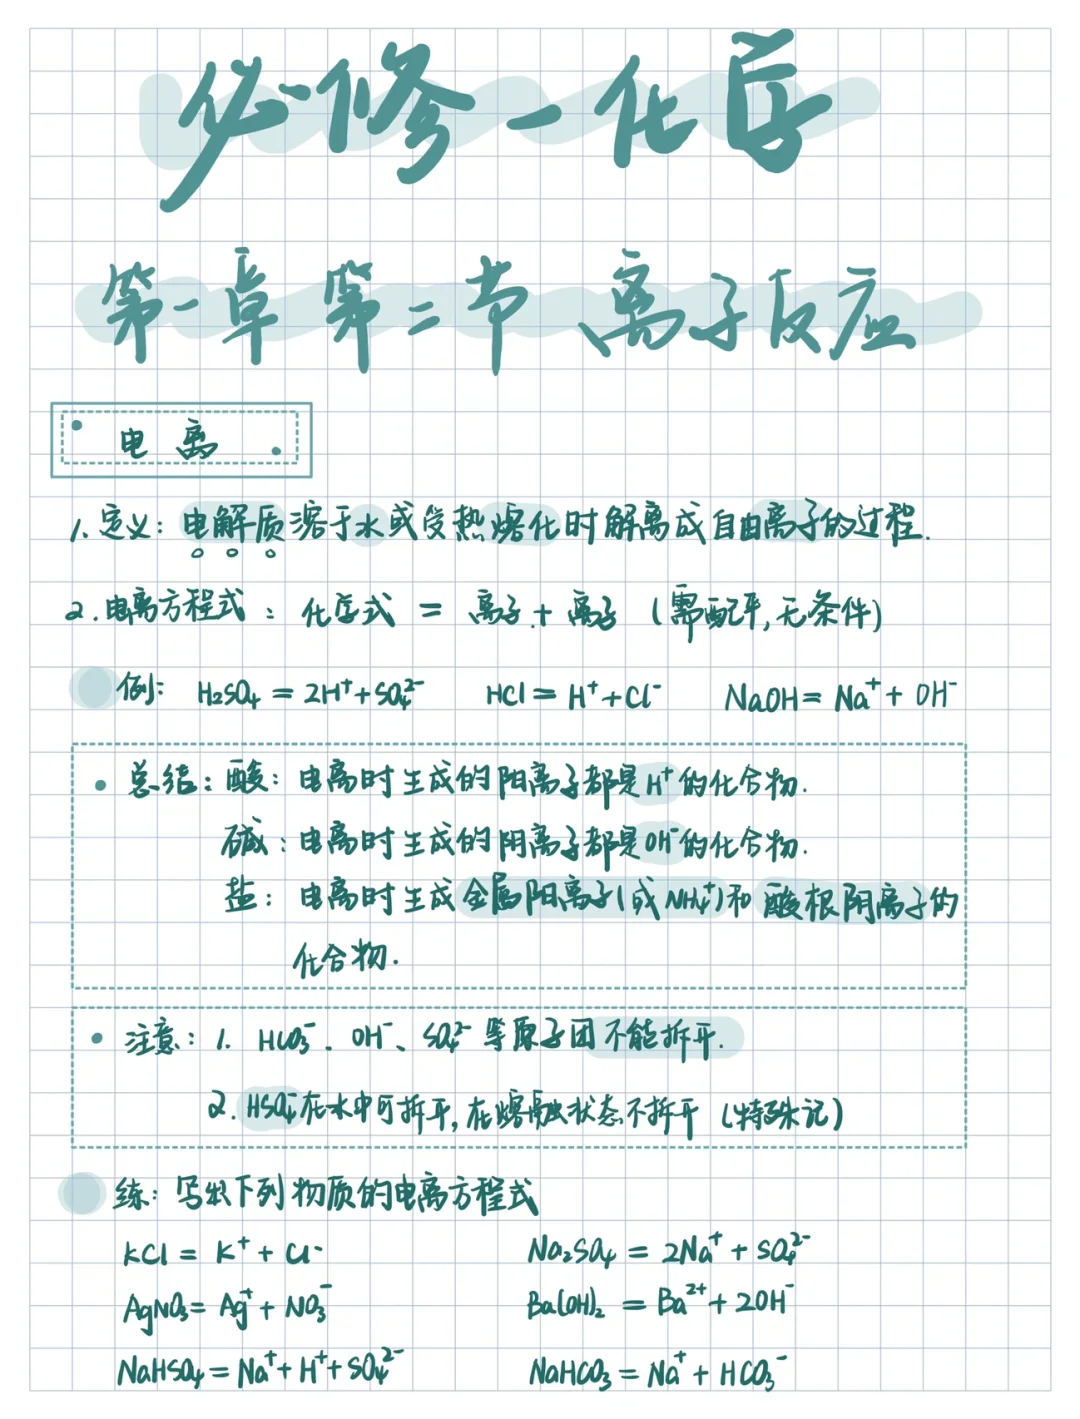 必修一化学
第一章 第二节 离子反应
电离
1. 定义：电解质溶于水或受热熔化时解离成自由离子的过程.
2. 电离方程式：化学式 = 离子 + 离子 (需配平,无条件)
例：H₂SO₄ = 2H⁺ + SO₄²⁻ HCl = H⁺ + Cl⁻ NaOH = Na⁺ + OH⁻
• 总结：酸：电离时生成的阳离子都是H⁺的化合物.
碱：电离时生成的阴离子都是OH⁻的化合物.
盐：电离时生成金属阳离子(或NH₄⁺)和酸根阴离子的
化合物.
• 注意：1. HCO₃⁻、OH⁻、SO₄²⁻ 等原子团不能拆开.
2. HSO₄⁻在水中可拆开,在熔融状态不拆开 (特殊记)
练：写出下列物质的电离方程式
KCl = K⁺ + Cl⁻ Na₂SO₄ = 2Na⁺ + SO₄²⁻
AgNO₃ = Ag⁺ + NO₃⁻ Ba(OH)₂ = Ba²⁺ + 2OH⁻
NaHSO₄ = Na⁺ + H⁺ + SO₄²⁻ NaHCO₃ = Na⁺ + HCO₃⁻